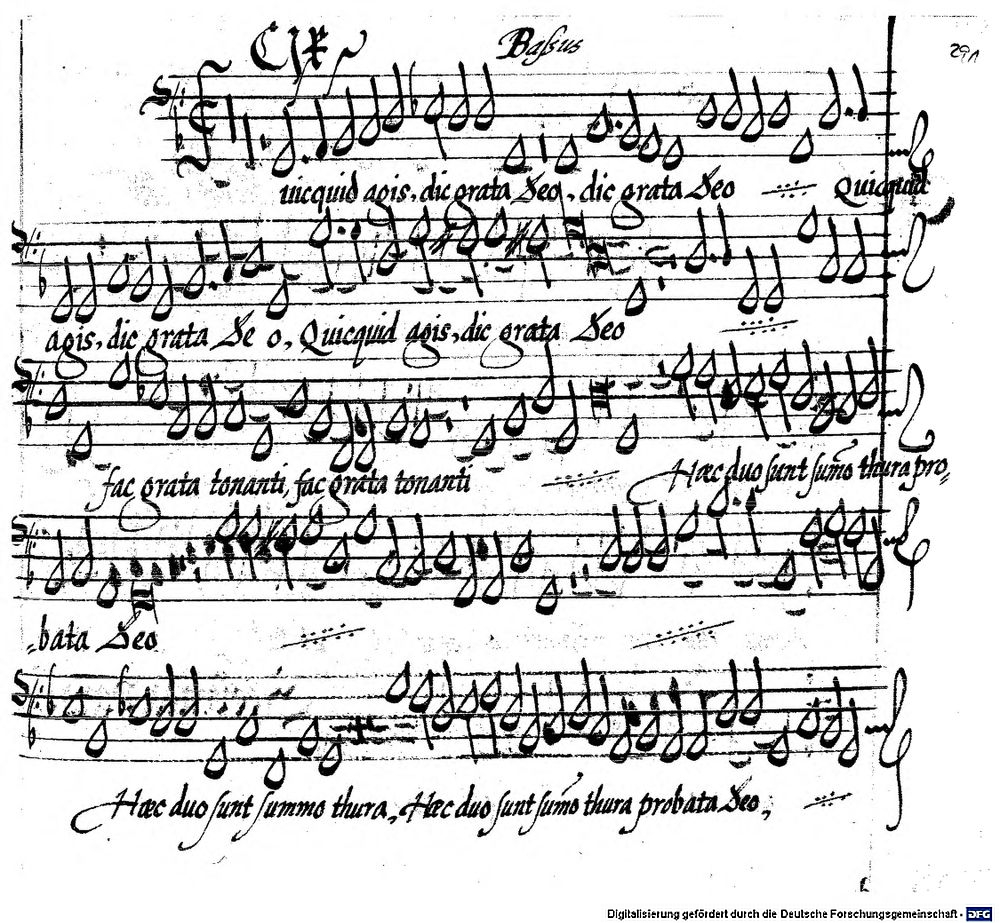 CIX Bassus 291
uicquid agis, dic grata Deo, dic grata Deo Quicquid
agis, dic grata De o, Quicquid agis, dic grata Deo
fac grata tonanti, fac grata tonanti Hæc duo sunt sum̄o thura pro,
-bata Deo
Hæc duo sunt summo thura, Hæc duo sunt sum̄o thura probata Deo,
Digitalisierung gefördert durch die Deutsche Forschungsgemeinschaft - DFG